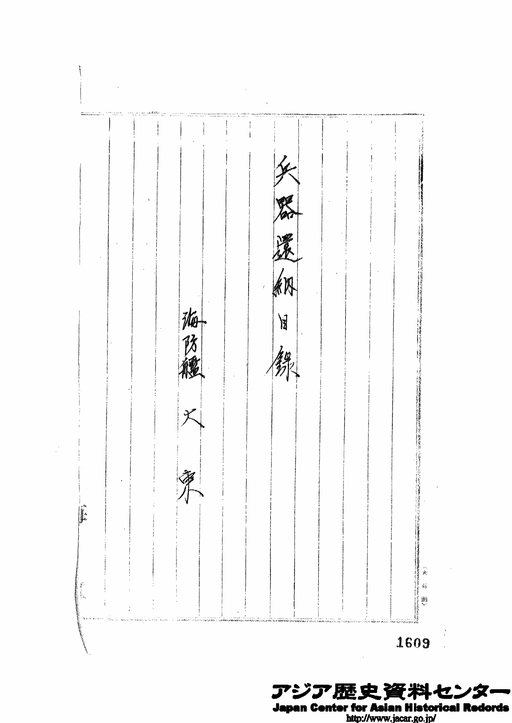 兵器還納目録
海防艦 大東
1609
アジア歴史資料センター
Japan Center for Asian Historical Records
http://www.jacar.go.jp/